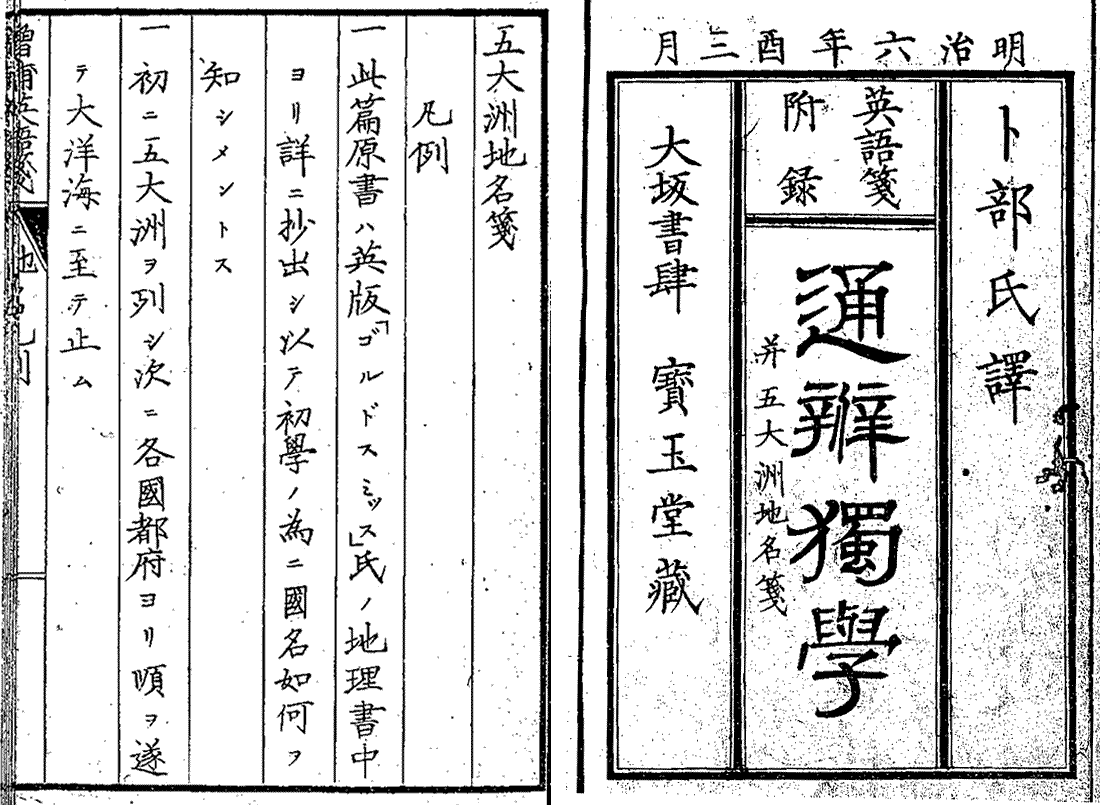 明治六年酉三月
卜部氏譯
英語箋
附録
通辨獨學
并五大洲地名箋
大坂書肆 寶玉堂藏
五大洲地名箋
凡例
一此篇原書ハ英版「ゴルドスミッス」氏ノ地理書中
ヨリ詳ニ抄出シ以テ初學ノ為ニ國名如何ヲ
知シメントス
一初ニ五大洲ヲ列シ次ニ各國都府ヨリ順ヲ遂
テ大洋海ニ至テ止ム